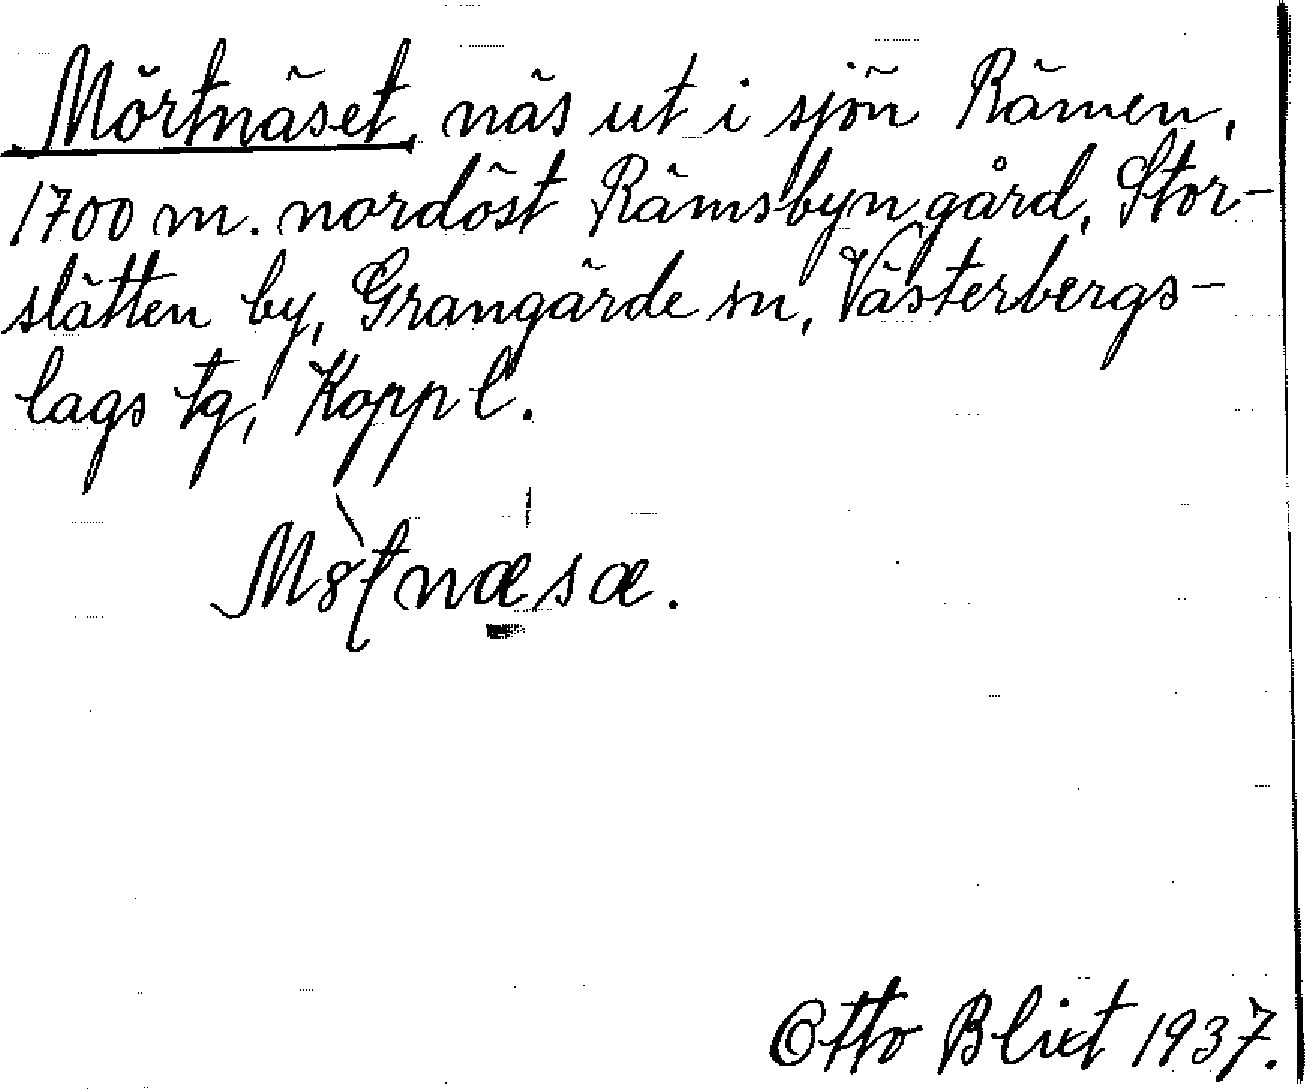 Mörtnäset, näs ut i sjön Rämen,
1700 m. nordöst Rämsbyn gård, Stor-
slätten by, Grangärde sn, Västerbergs-
lags tg, Kopp l.
M8ʈnæsæ.
Otto Blixt 1937.